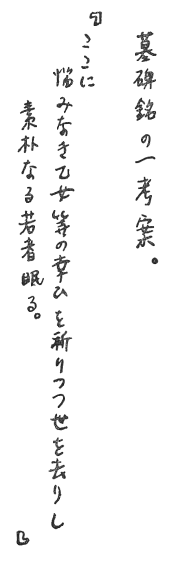 墓碑銘の一考案。
『ここに
悩みなき乙女等の幸ひを祈りつつ世を去りし
素朴なる若者眠る。
』